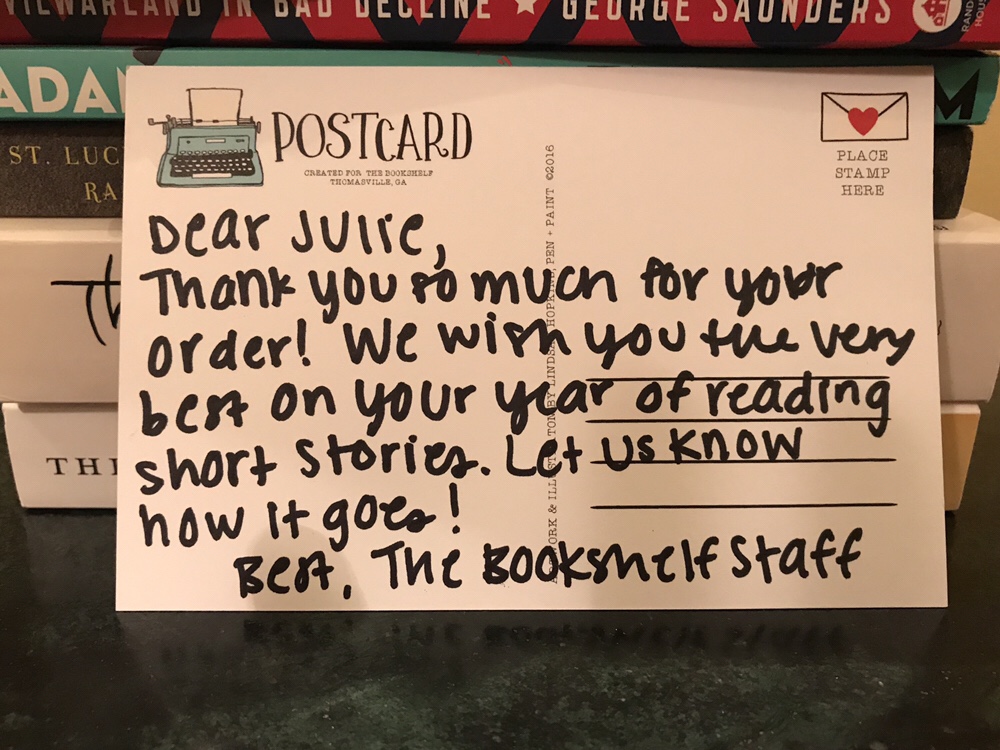 CIVILWARLAND IN BAD DECLINE ★ GEORGE SAUNDERS
RAND
HOUS
ADA
M
ST. LUC
RA
Th
THE
POSTCARD
CREATED FOR THE BOOKSHELF
THOMASVILLE, GA
PLACE
STAMP
HERE
PEN + PAINT ©2016
Dear Julie,
Thank you so much for your
order! We wish you the very
best on your year of reading
short stories. Let us know
how it goes!
Best, The Bookshelf Staff